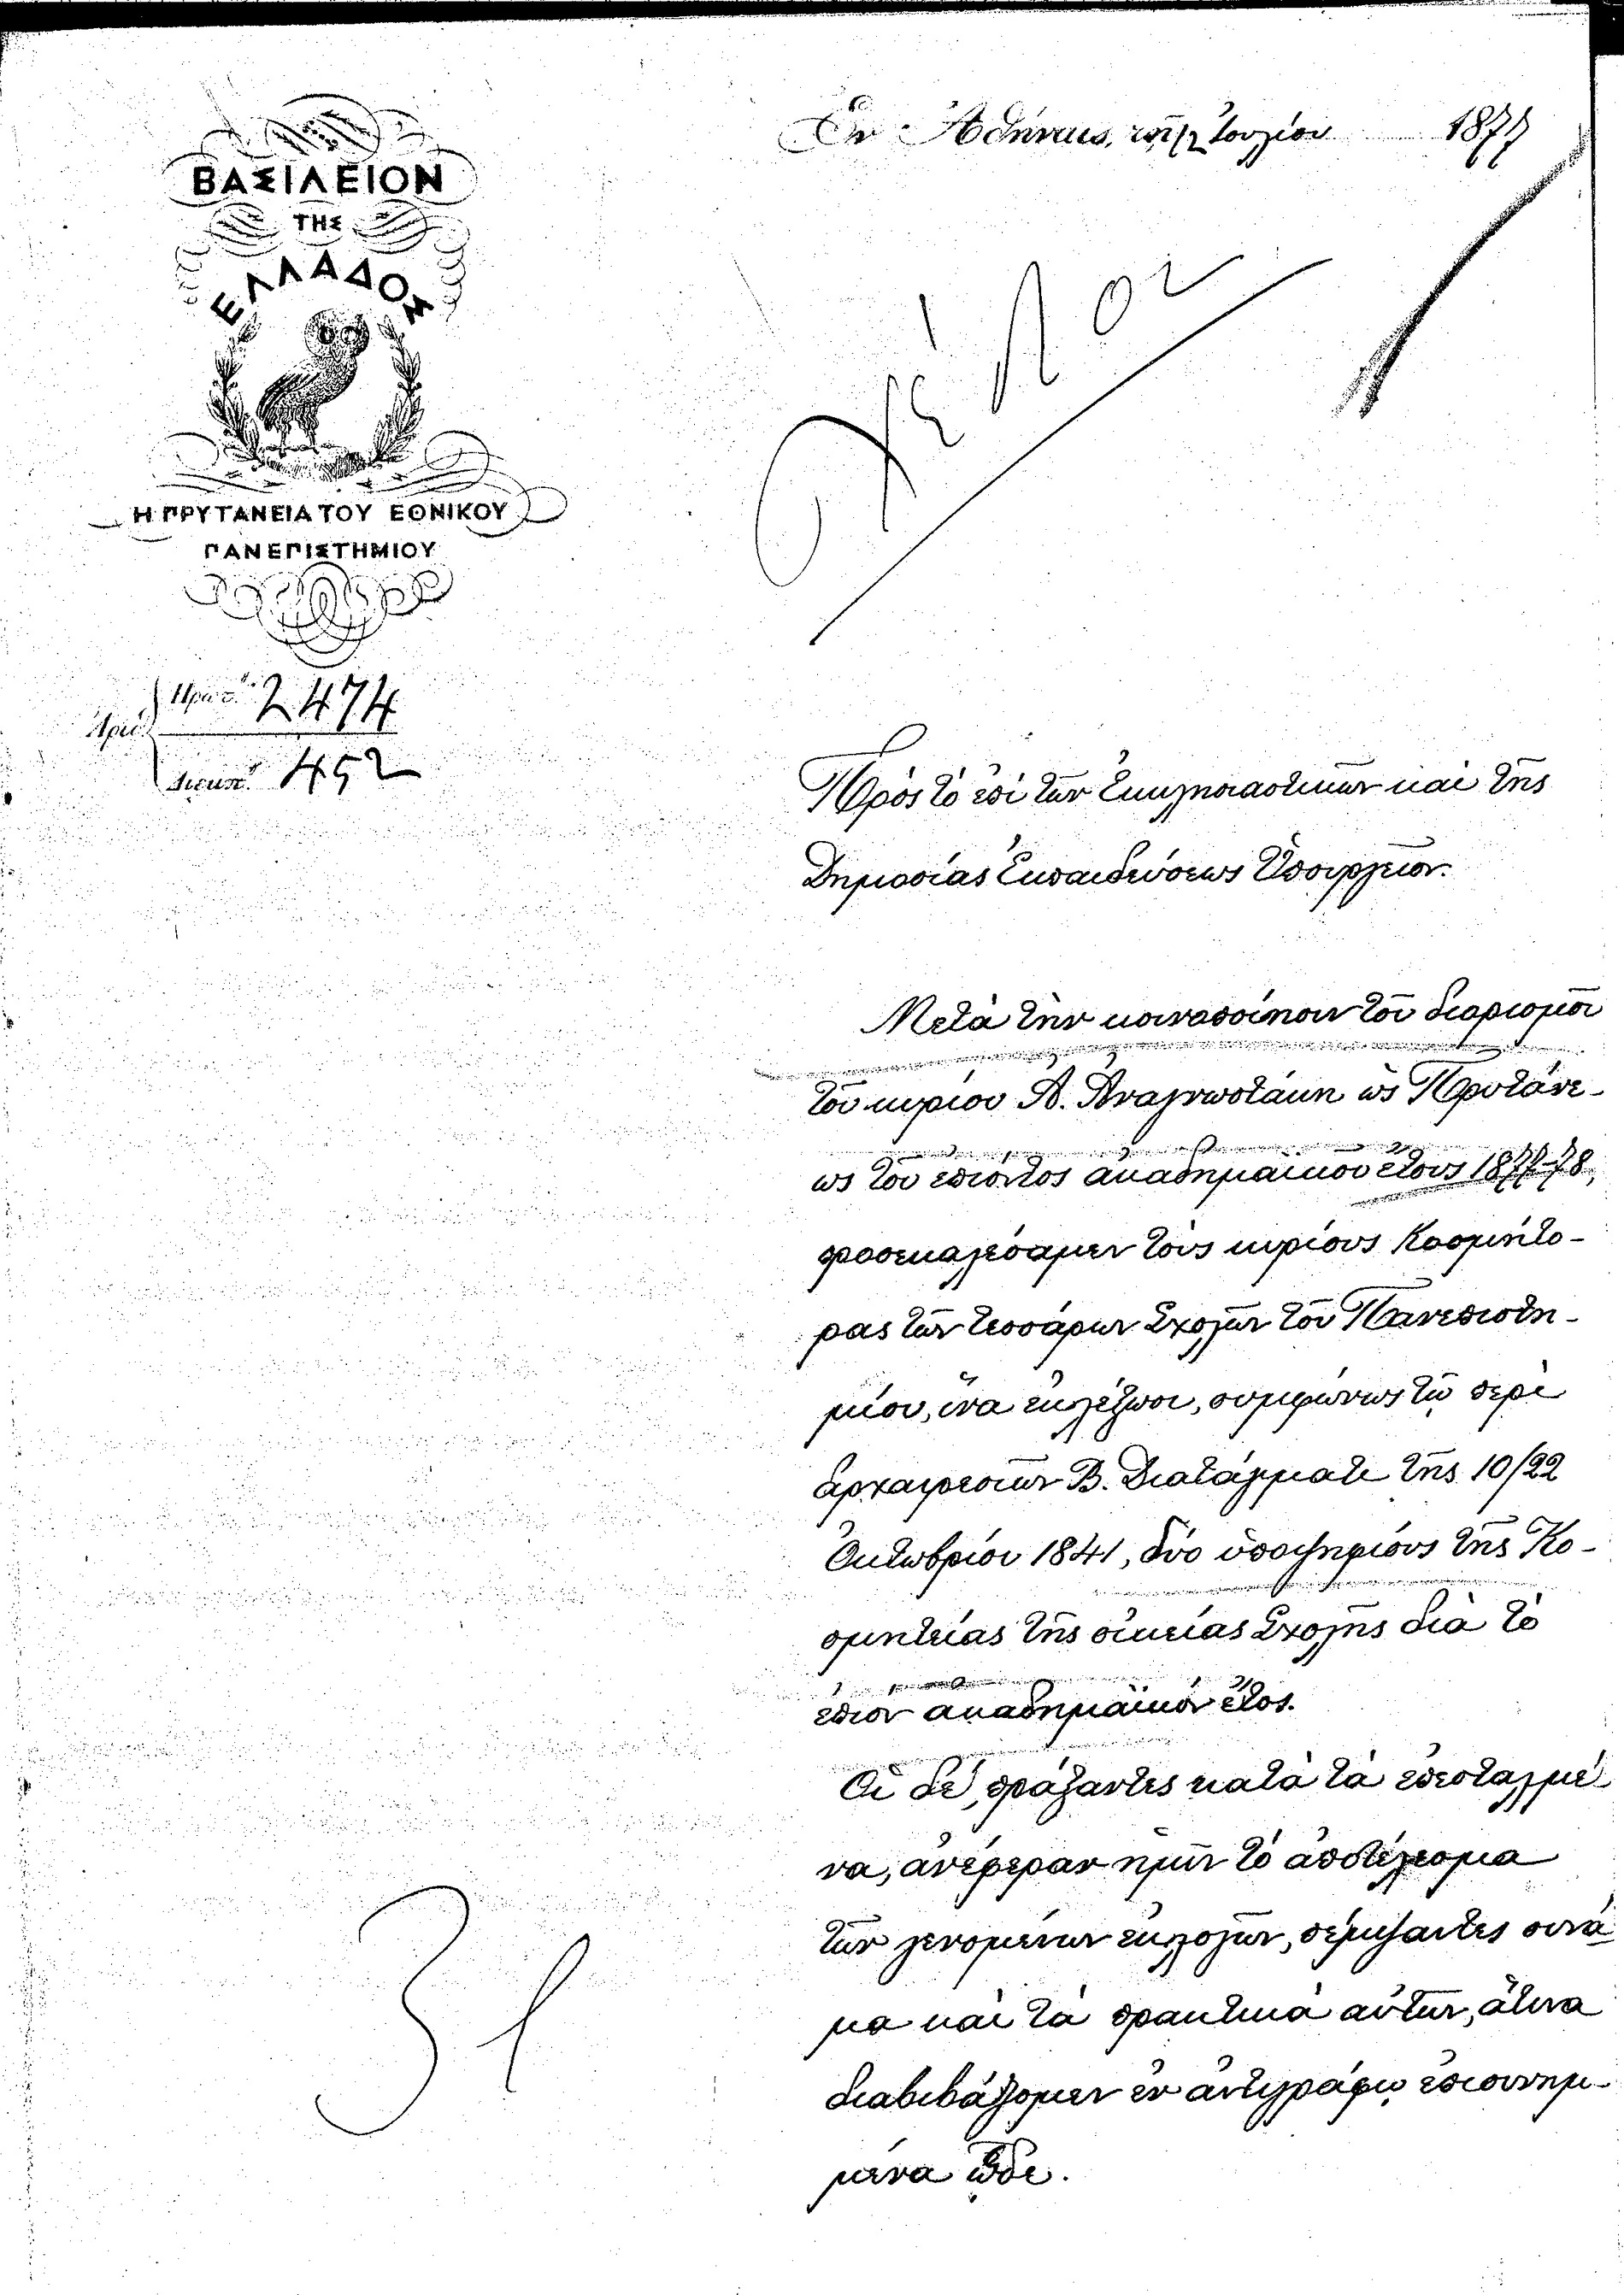 Ἐν Ἀθήναις, τῇ 12 Ἰουλίου 1877
ΒΑΣΙΛΕΙΟΝ
ΤΗΣ
ΕΛΛΑΔΟΣ
Η ΠΡΥΤΑΝΕΙΑ ΤΟΥ ΕΘΝΙΚΟΥ
ΠΑΝΕΠΙΣΤΗΜΙΟΥ
2474
452
Πρὸς τὸ ἐπὶ τῶν Ἐκκλησιαστικῶν καὶ τῆς
Δημοσίας Ἐκπαιδεύσεως Ὑπουργεῖον.
Μετὰ τὴν κοινοποίησιν τοῦ διορισμοῦ
τοῦ κυρίου Α. Ἀναγνωστάκη ὡς Πρυτάνε-
ως τοῦ ἐπιόντος ἀκαδημαϊκοῦ ἔτους 1877-78,
προσεκαλέσαμεν τοὺς κυρίους Κοσμήτο-
ρας τῶν τεσσάρων Σχολῶν τοῦ Πανεπιστη-
μίου, ἵνα ἐκλέξωσι, συμφώνως τῷ περὶ
ἀρχαιρεσιῶν Β. Διατάγματι τῆς 10/22
Ὀκτωβρίου 1841, δύο ὑποψηφίους τῆς Κο-
σμητείας τῆς οἰκείας Σχολῆς διὰ τὸ
ἐπιὸν ἀκαδημαϊκὸν ἔτος.
Οἱ δέ, πράξαντες κατὰ τὰ ἐπεσταλμέ-
να, ἀνέφεραν ἡμῖν τὸ ἀποτέλεσμα
τῶν γενομένων ἐκλογῶν, πέμψαντες συνά-
μα καὶ τὰ πρακτικὰ αὐτῶν, ἅτινα
διαβιβάζομεν ἐν ἀντιγράφῳ ἐπισυνημ-
μένα ὧδε.
31